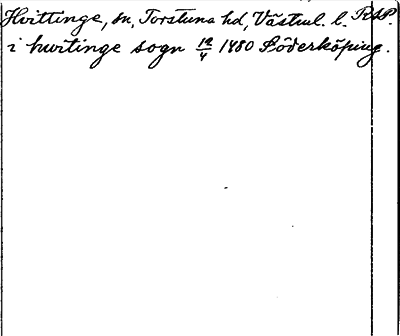 Hvittinge, sn, Torstuna hd, Västml. l. RAP.
i hwitinge sogn 12/4 1480 Söderköping.